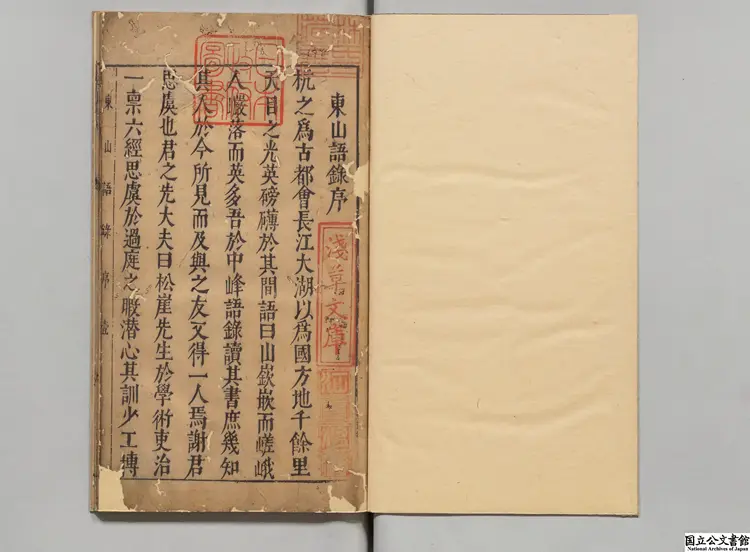 東山語錄序
杭之爲古都會長江大湖以爲國方地千餘里
天目之光英磅礴於其間語曰山嶔嵌而嵯峨
人巖落而英多吾於中峰語錄讀其書庶幾知
其人於今所見而及與之友又得一人焉謝君
思虞也君之先大夫曰松崖先生於學術吏治
一稟六經思虞於過庭之暇潛心其訓少工轉
東山語錄序
淺草文庫
日本政府圖書
国立公文書館
National Archives of Japan